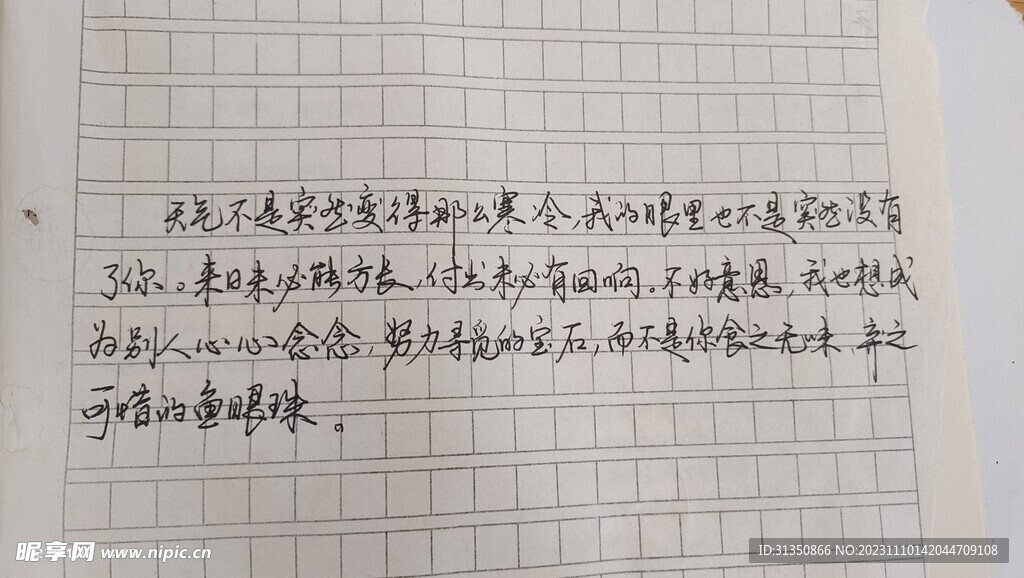 天气不是突然变得那么寒冷,我的眼里也不是突然没有
了你。来日未必能方长,付出未必有回响。不好意思,我也想成
为别人心心念念,努力寻觅的宝石,而不是你食之无味、弃之
可惜的鱼眼珠。
昵享网 www.nipic.cn
ID:31350866 NO:20231110142044709108